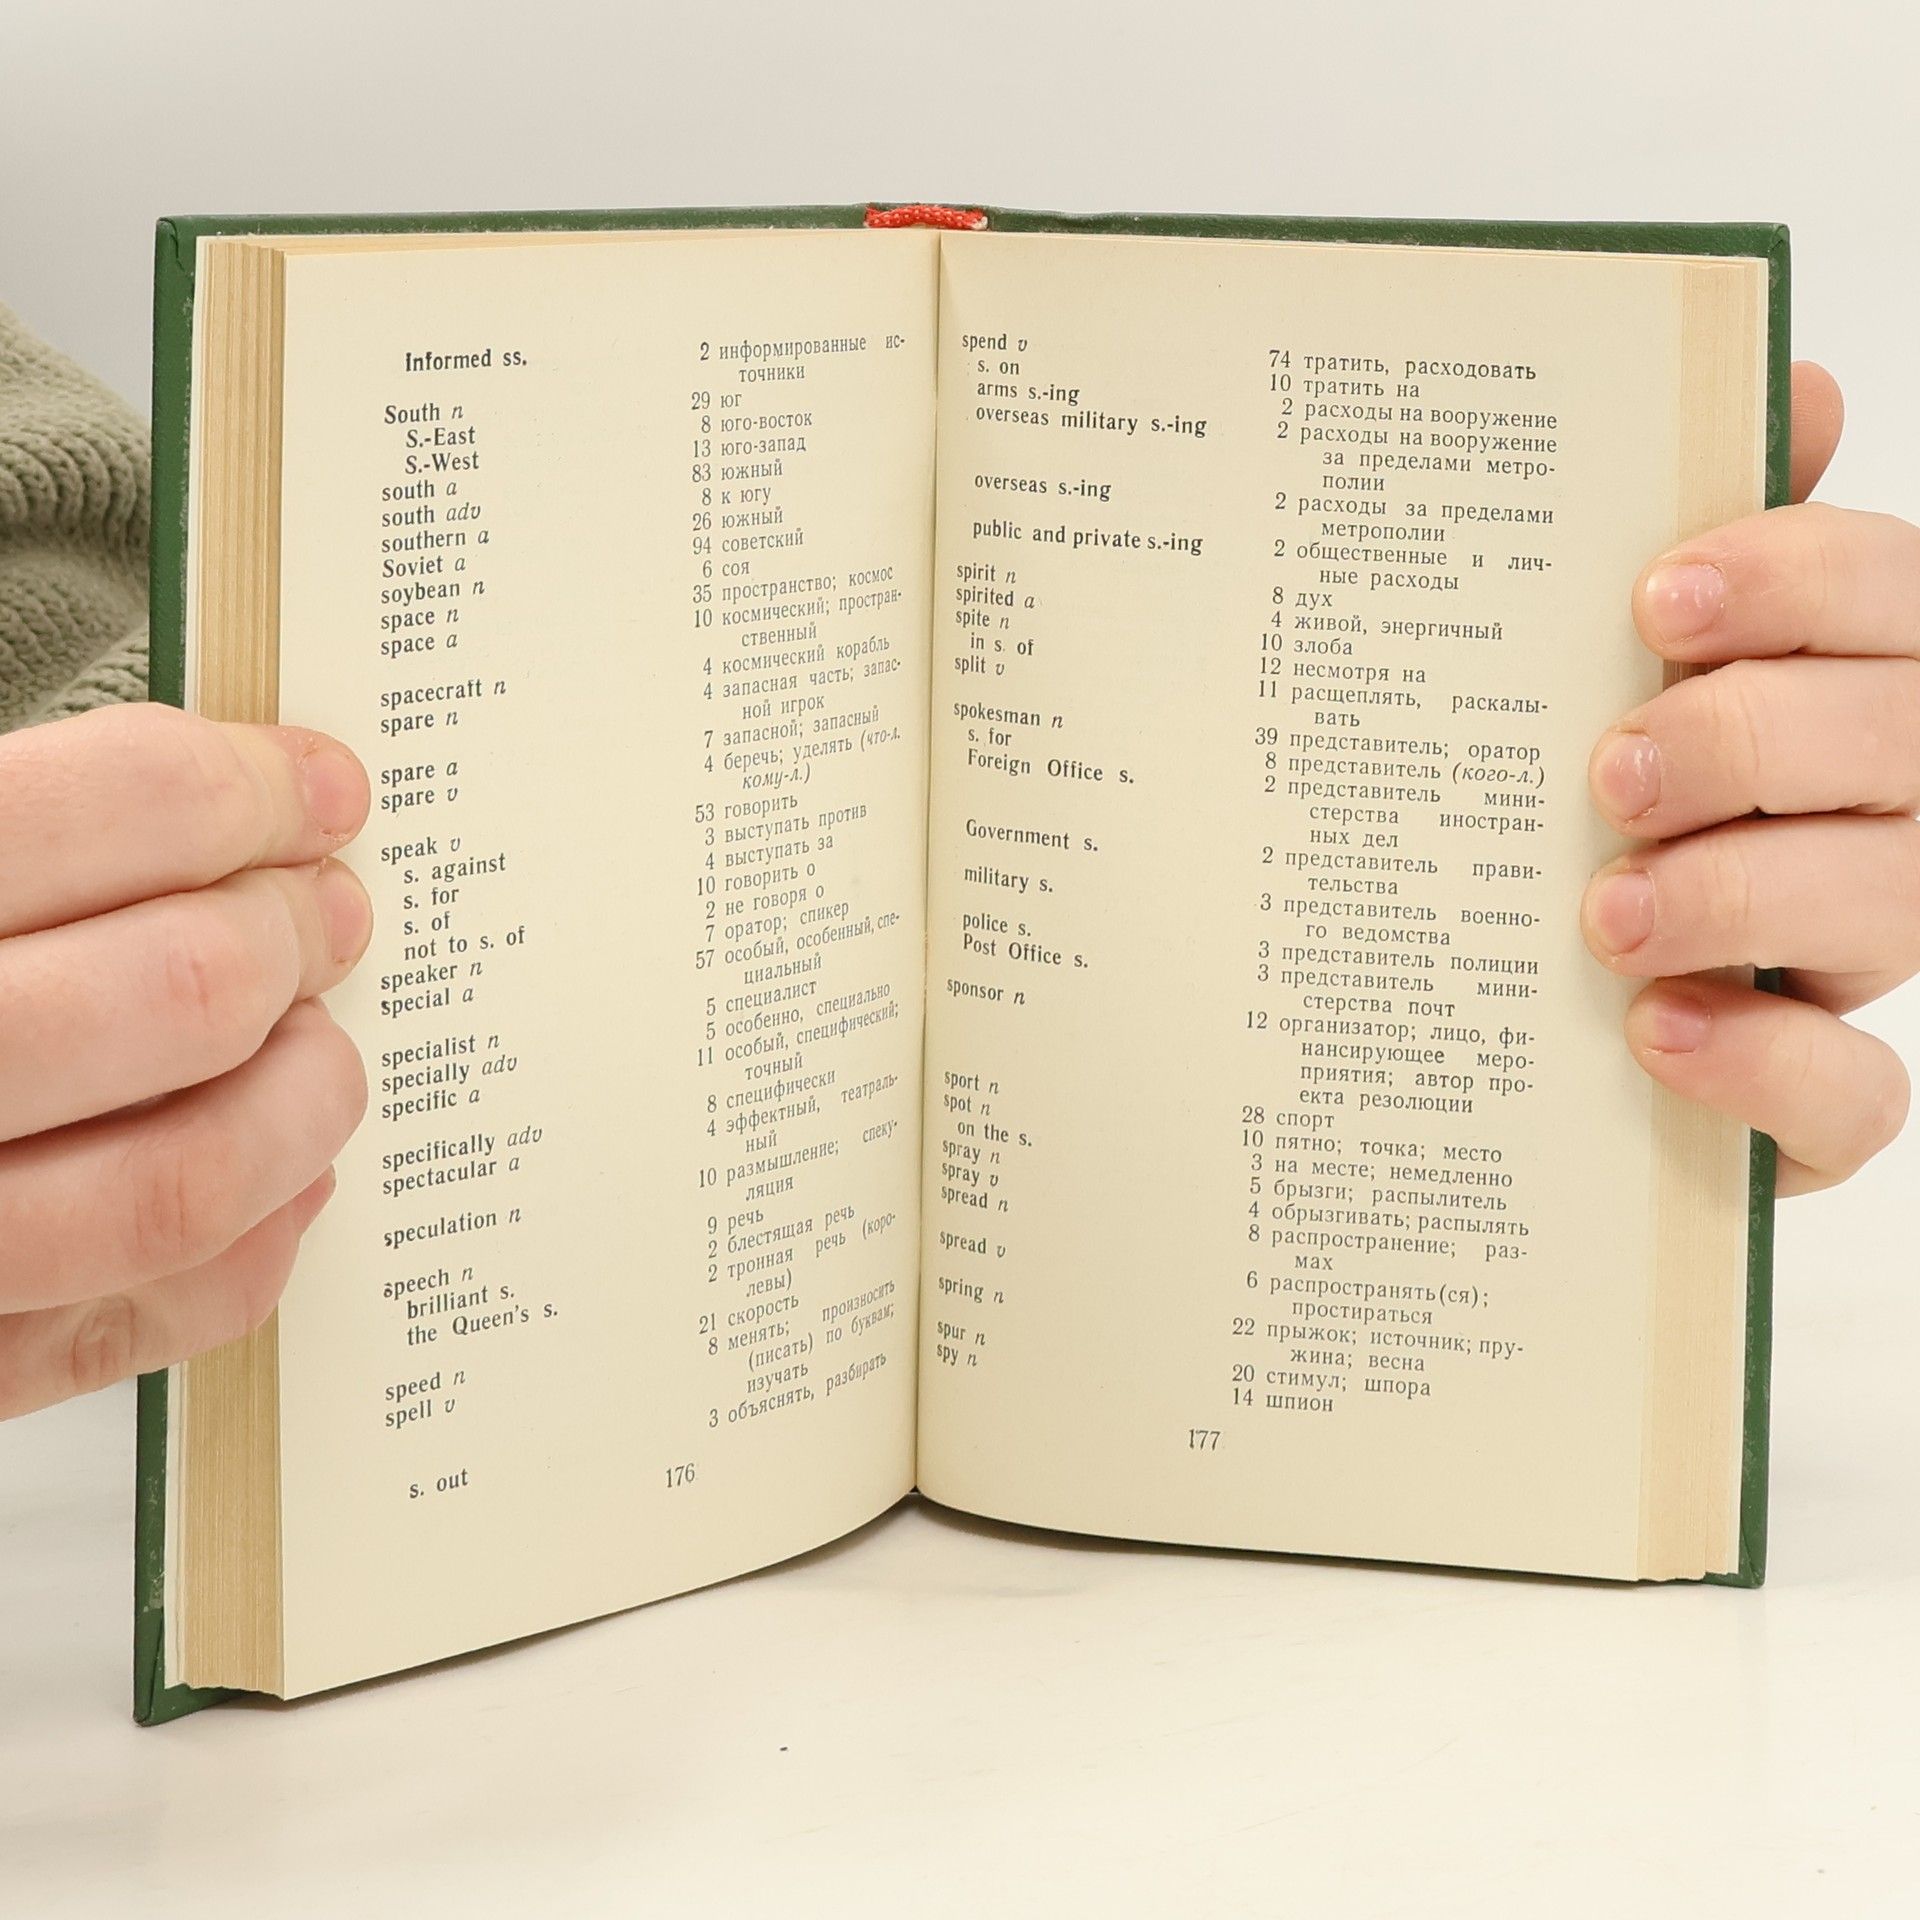 Informed ss.
2 информированные ис-
точники
South n
29 юг
S.-East
8 юго-восток
S.-West
13 юго-запад
south a
83 южный
south adv
8 к югу
southern a
26 южный
Soviet a
94 советский
soybean n
6 соя
space n
35 пространство; космос
space a
10 космический; простран-
ственный
spacecraft n
4 космический корабль
spare n
4 запасная часть; запас-
ной игрок
spare a
7 запасной; запасный
spare v
4 беречь; уделять (что-л.
кому-л.)
speak v
53 говорить
s. against
3 выступать против
s. for
4 выступать за
s. of
10 говорить о
not to s. of
2 не говоря о
speaker n
7 оратор; спикер
special a
57 особый, особенный, спе-
циальный
specialist n
5 специалист
specially adv
5 особенно, специально
specific a
11 особый, специфический;
точный
specifically adv
8 специфически
spectacular a
4 эффектный, театраль-
ный
speculation n
10 размышление; спеку-
ляция
speech n
9 речь
brilliant s.
2 блестящая речь
the Queen's s.
2 тронная речь (коро-
левы)
speed n
21 скорость
spell v
8 менять; произносить
(писать) по буквам;
изучать
s. out
3 объяснять, разбирать
176
spend v
74 тратить, расходовать
s. on
10 тратить на
arms s.-ing
2 расходы на вооружение
overseas military s.-ing
2 расходы на вооружение
за пределами метро-
полии
overseas s.-ing
2 расходы за пределами
метрополии
public and private s.-ing
2 общественные и лич-
ные расходы
spirit n
8 дух
spirited a
4 живой, энергичный
spite n
10 злоба
in s. of
12 несмотря на
split v
11 расщеплять, раскалы-
вать
spokesman n
39 представитель; оратор
s. for
8 представитель (кого-л.)
Foreign Office s.
2 представитель мини-
стерства иностран-
ных дел
Government s.
2 представитель прави-
тельства
military s.
3 представитель военно-
го ведомства
police s.
3 представитель полиции
Post Office s.
3 представитель мини-
стерства почт
sponsor n
12 организатор; лицо, фи-
нансирующее меро-
приятия; автор про-
екта резолюции
sport n
28 спорт
spot n
10 пятно; точка; место
on the s.
3 на месте; немедленно
spray n
5 брызги; распылитель
spray v
4 обрызгивать; распылять
spread n
8 распространение; раз-
мах
spread v
6 распространять(ся);
простираться
spring n
22 прыжок; источник; пру-
жина; весна
spur n
20 стимул; шпора
spy n
14 шпион
177